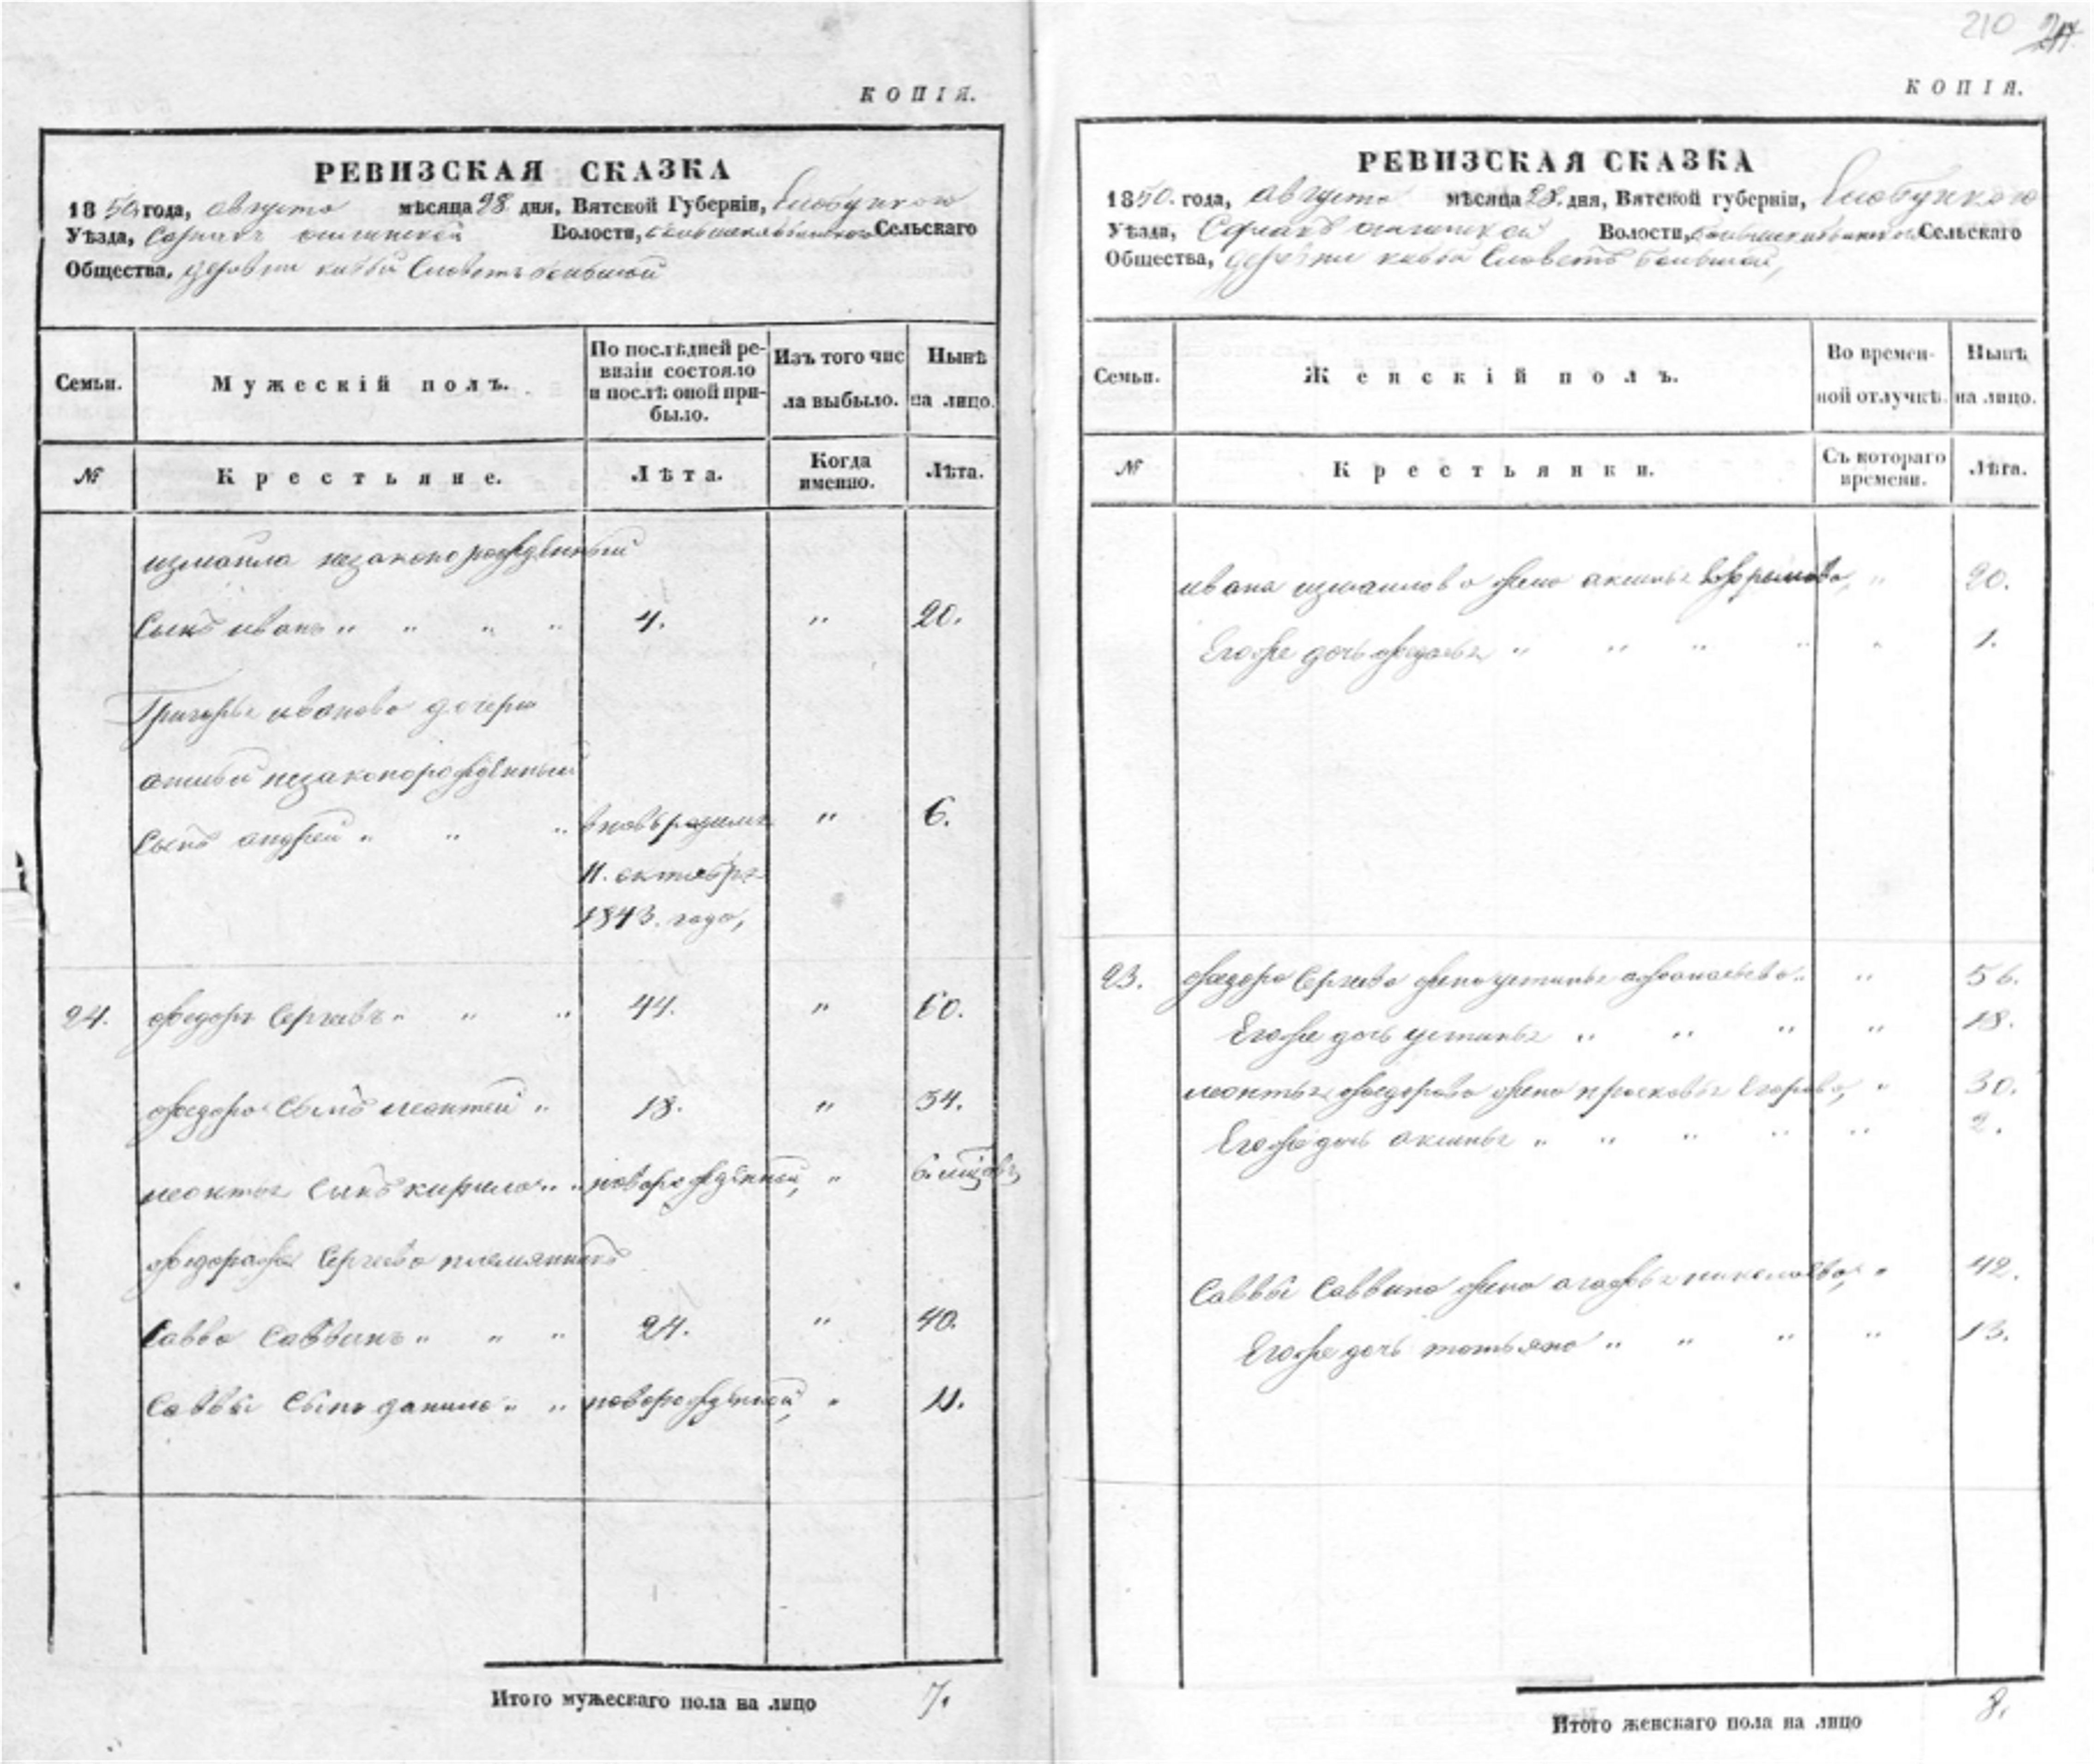 210
КОПІЯ.
РЕВИЗСКАЯ СКАЗКА
1850 года, августа мѣсяца 28 дня, Вятской Губерніи, Елабужского
Уѣзда, Волости, Сельскаго
Общества, деревни большой
Семьи.
Мужескій полъ.
По послѣдней ре-
визіи состояло
и послѣ оной при-
было.
Изъ того чис
ла выбыло.
Нынѣ
на лицо.
№
Крестьяне.
Лѣта.
Когда
именно.
Лѣта.
измаила незаконорожденный
Сынъ иванъ " " " " 4. " 20.
Григорья иванова дочери
незаконорожденный
Сынъ андрей " " " вновь родился " 6.
11. октября
1843. года,
24. федоръ Сергеевъ " " " 44. " 60.
федора Сынъ леонтей " 18. " 34.
леонтья Сынъ кирило " " новорожденной, "
федора же Сергеева племянникъ
Савва Саввинъ " " " 24. " 40.
Саввы Сынъ данило " " новорожденной, " 11.
Итого мужескаго пола на лицо 7.
КОПІЯ.
РЕВИЗСКАЯ СКАЗКА
1850. года, августа мѣсяца 28. дня, Вятской губерніи, Елабужского
Уѣзда, Волости, Сельскаго
Общества, деревни большой,
Семьи.
Женскій полъ.
Во времен-
ной отлучкѣ.
Нынѣ
на лицо.
№
Крестьянки.
Съ котораго
времени.
Лѣта.
ивана измаилова жена аксинья " 20.
Его же дочь федосья " " " " " 1.
23. федора Сергеева жена устинья афонасьева " " 56.
Его же дочь устинья " " " " 18.
леонтья федорова жена прасковья Егорова, " 30.
Его же дочь аксинья " " " " " 2.
Саввы Саввина жена агафья николаева, " 42.
Его же дочь татьяна " " " " 13.
Итого женскаго пола на лицо 8.